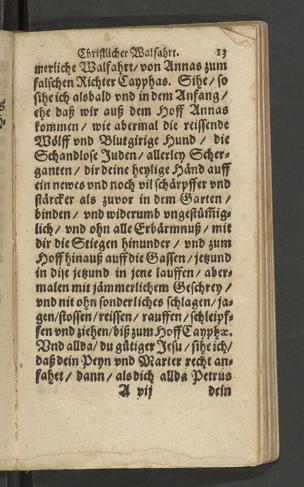 Christlicher Walfahrt. 13
merliche Walfahrt / von Annas zum
falschen Richter Cayphas. Sihe / so
sihe ich alsbald vnd in dem Anfang /
ehe daß wir auß dem Hoff Annas
kommen / wie abermal die reissende
Wölff vnd Blutgirige Hund / die
Schandlose Juden / allerley Scher-
ganten / dir deine heylige Händ auff
ein newes vnd noch vil schärpffer vnd
stärcker als zuvor in dem Garten /
binden / vnd widerumb vngestümig-
lich / vnd ohn alle Erbärmnuß / mit
dir die Stiegen hinunder / vnd zum
Hoff hinauß auff die Gassen / jetzund
in dise jetzund in jene lauffen / aber-
malen mit jämmerlichem Geschrey /
vnd nit ohn sonderliches schlagen / ja-
gen / stossen / reissen / rauffen / schleipf-
fen vnd ziehen / biß zum Hoff Cayphæ.
Vnd allda / du gütiger Jesu / sihe ich /
daß dein Peyn vnd Marter recht an-
fahet / dann / als dich allda Petrus
A vij dein